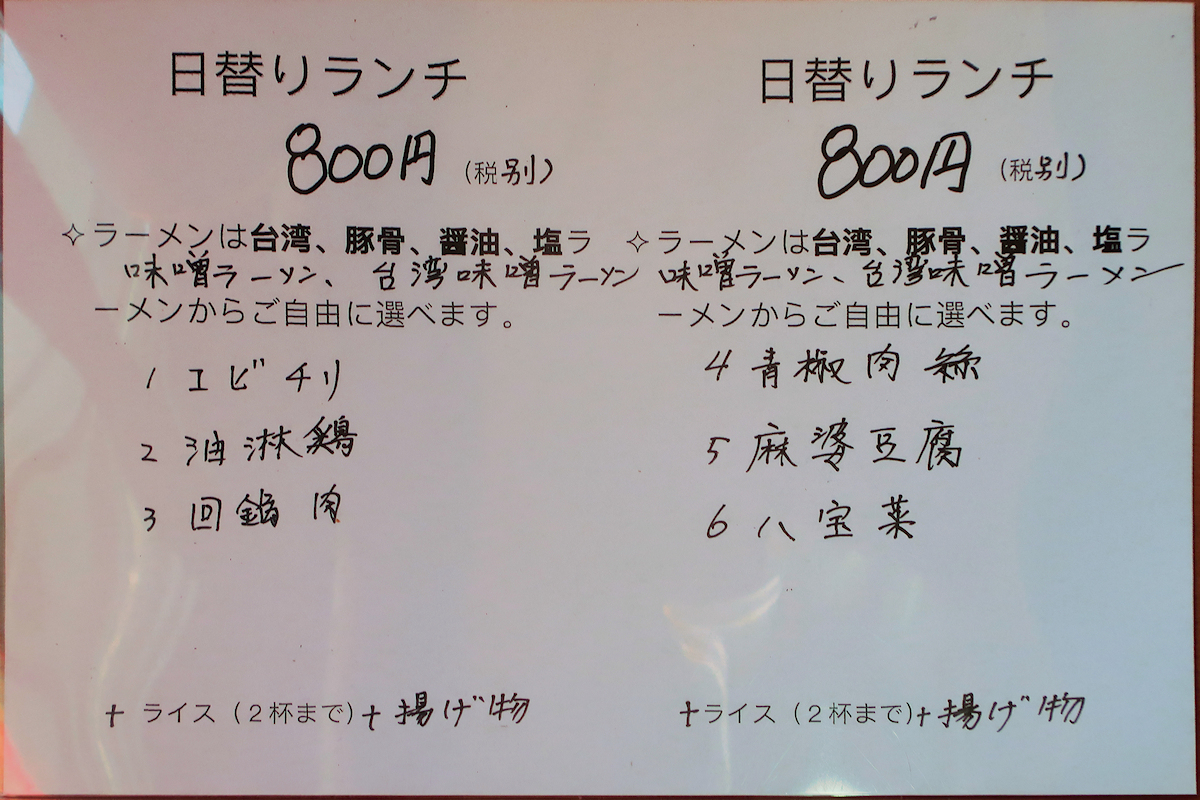 日替りランチ
800円（税別）
✧ラーメンは台湾、豚骨、醤油、塩ラ
味噌ラーメン、台湾味噌ラーメン
ーメンからご自由に選べます。
1 エビチリ
2 油淋鶏
3 回鍋肉
+ ライス（２杯まで)+ 揚げ物
日替りランチ
800円（税別）
✧ラーメンは台湾、豚骨、醤油、塩ラ
味噌ラーメン、台湾味噌ラーメン
ーメンからご自由に選べます。
4 青椒肉絲
5 麻婆豆腐
6 八宝菜
+ライス（２杯まで)+揚げ物